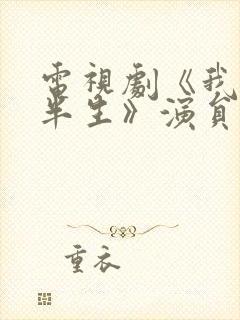 電視劇《我
半生》演員
重衣